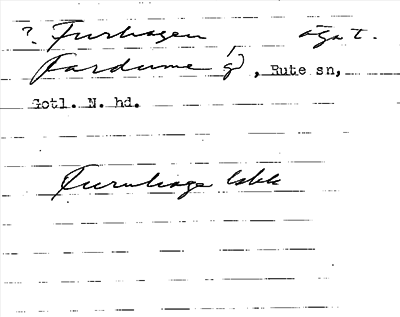 ? Furhagen, äga t.
Fardume g), Rute sn,
Gotl. N. hd.
Furuhage lskk